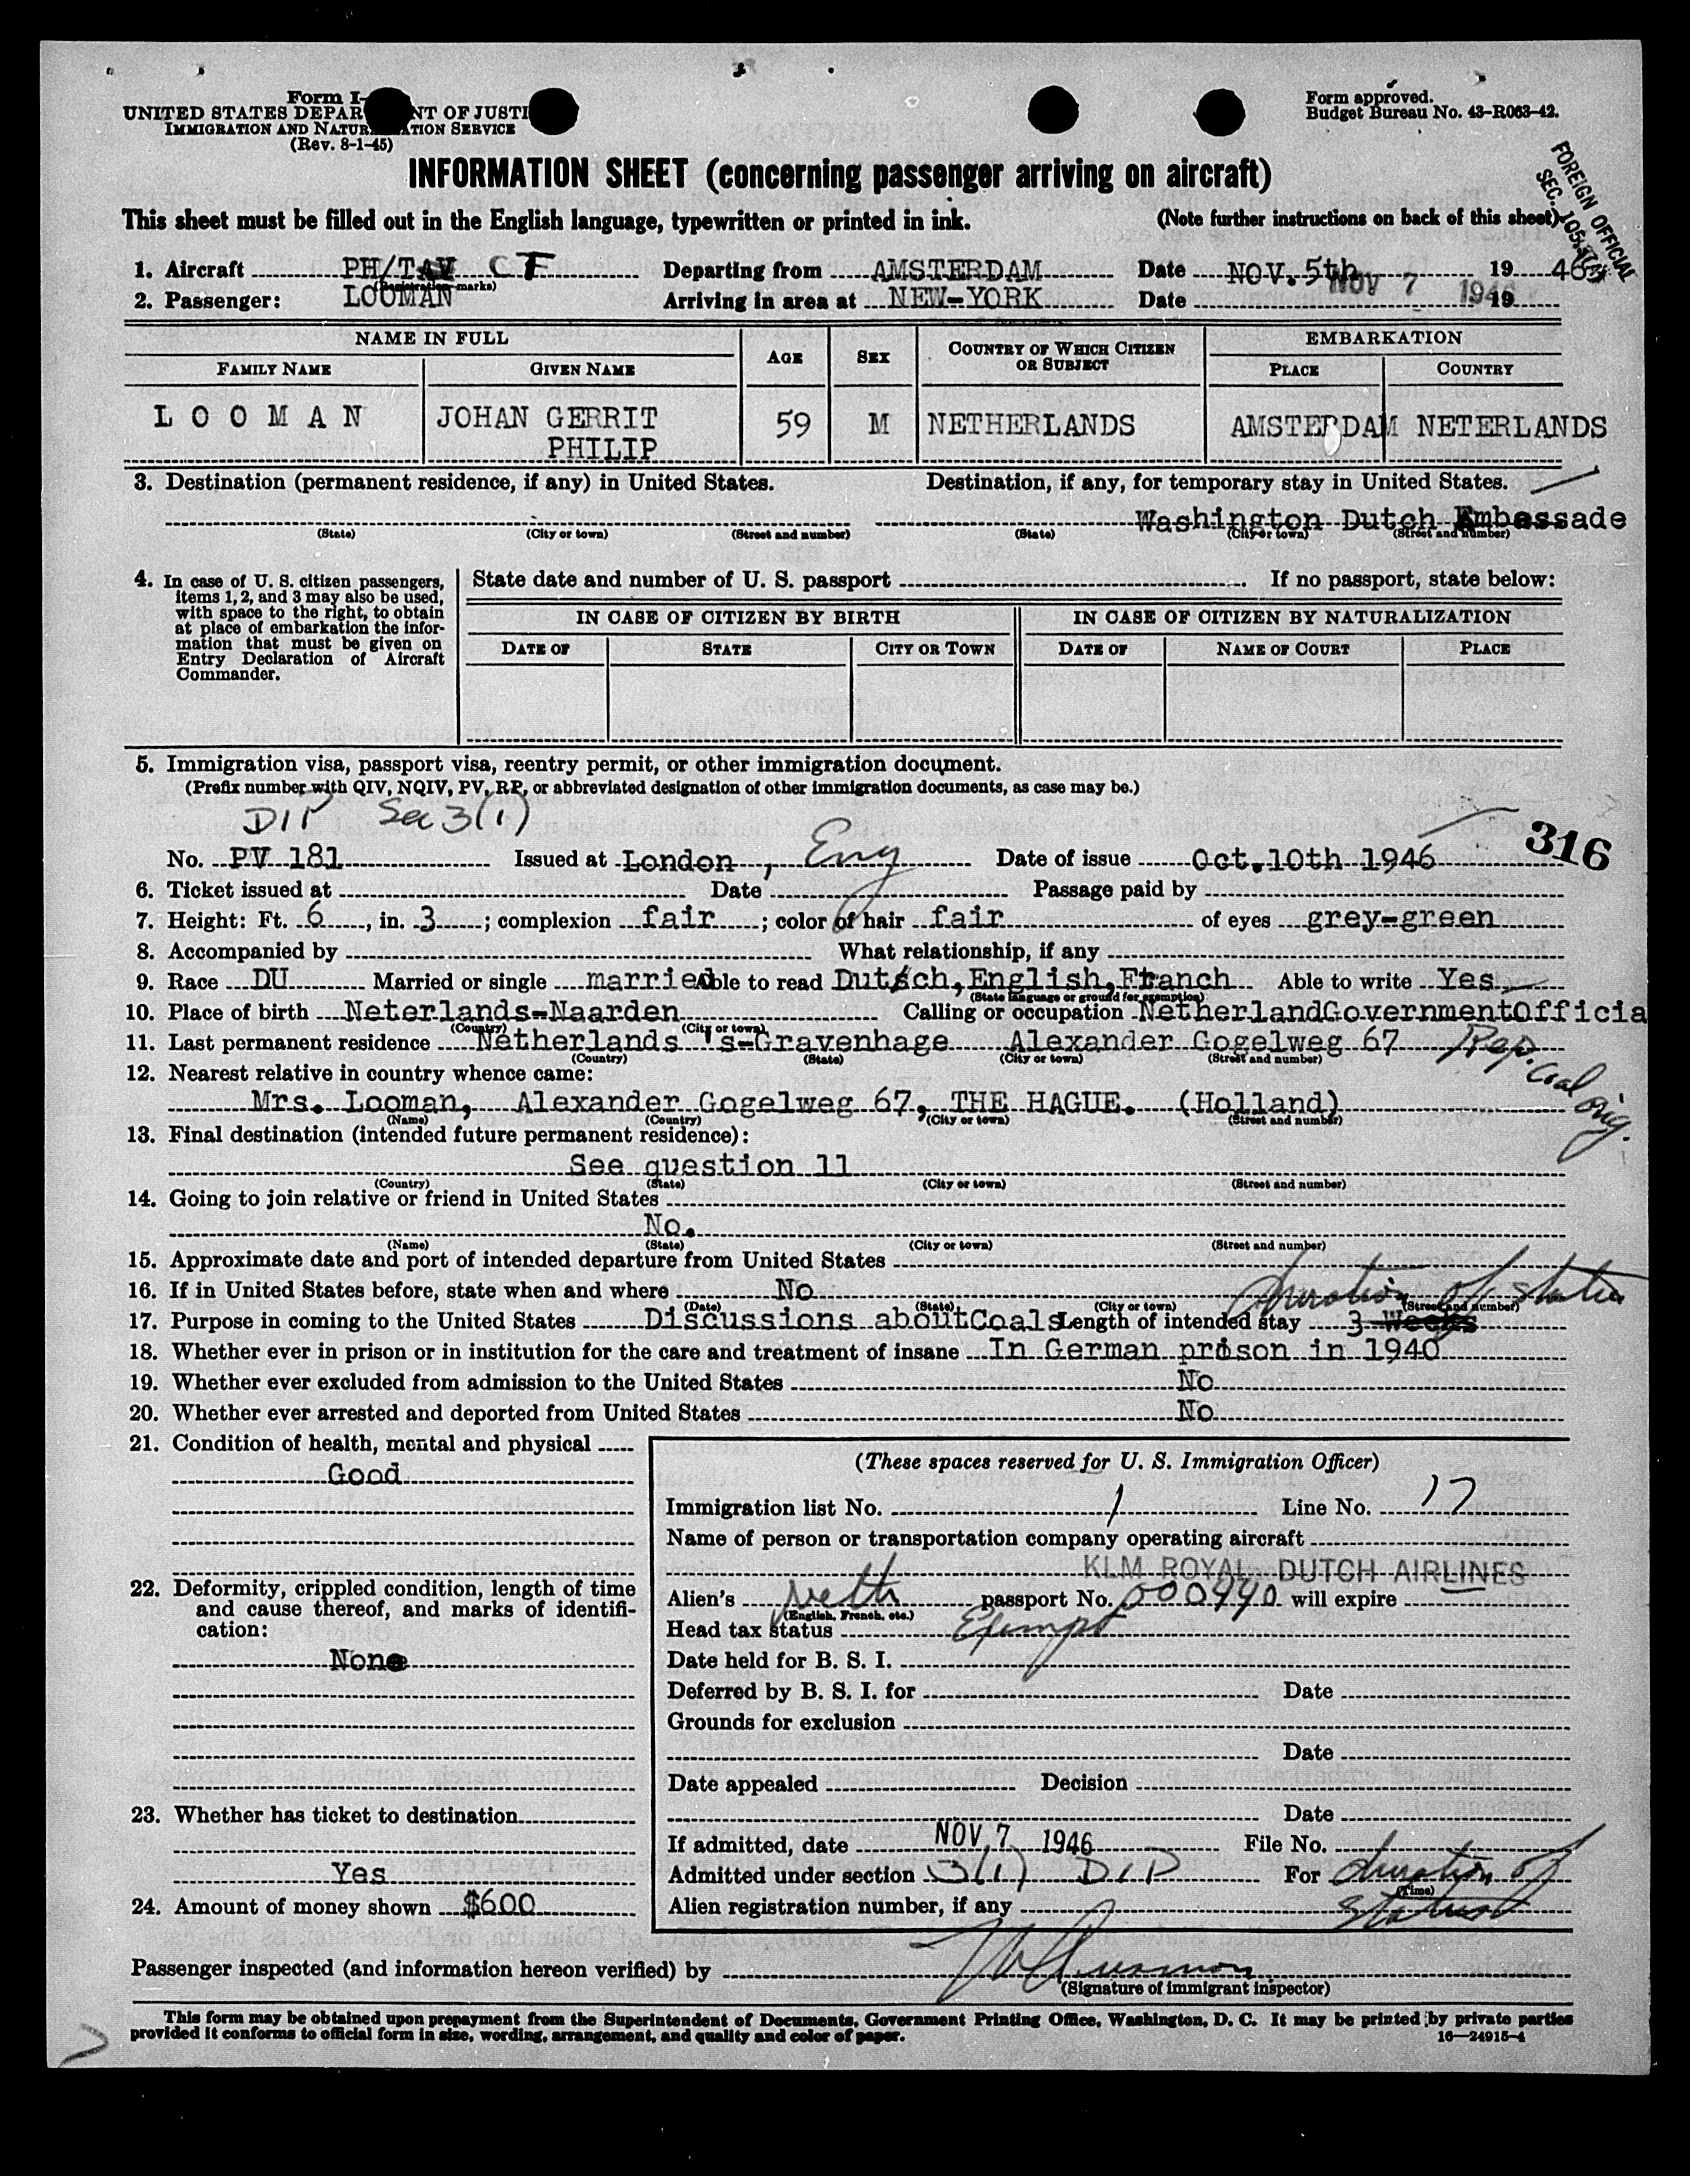 Form I-
UNITED STATES DEPAR NT OF JUSTI
IMMIGRATION AND NATUR TION SERVICE
(Rev. 8-1-45)
Form approved.
Budget Bureau No. 43-R063-42.
INFORMATION SHEET (concerning passenger arriving on aircraft)
FOREIGN OFFICIAL
SEC.
This sheet must be filled out in the English language, typewritten or printed in ink. (Note further instructions on back of this sheet)
1. Aircraft PH/T C F Departing from AMSTERDAM Date NOV. 5th 19 46
(Registration marks)
2. Passenger: LOOMAN Arriving in area at NEW-YORK Date NOV 7 1946 19
NAME IN FULL AGE SEX COUNTRY OF WHICH CITIZEN OR SUBJECT EMBARKATION
FAMILY NAME GIVEN NAME PLACE COUNTRY
L O O M A N JOHAN GERRIT 59 M NETHERLANDS AMSTERDAM NETERLANDS
PHILIP
3. Destination (permanent residence, if any) in United States. Destination, if any, for temporary stay in United States.
Washington Dutch Embassade
(State) (City or town) (Street and number) (State) (City or town) (Street and number)
4. In case of U. S. citizen passengers, items 1, 2, and 3 may also be used, with space to the right, to obtain at place of embarkation the information that must be given on Entry Declaration of Aircraft Commander.
State date and number of U. S. passport . If no passport, state below:
IN CASE OF CITIZEN BY BIRTH IN CASE OF CITIZEN BY NATURALIZATION
DATE OF STATE CITY OR TOWN DATE OF NAME OF COURT PLACE
5. Immigration visa, passport visa, reentry permit, or other immigration document.
(Prefix number with QIV, NQIV, PV, RP, or abbreviated designation of other immigration documents, as case may be.)
DIP Sec 3(1)
316
No. PV 181 Issued at London, Eng Date of issue Oct. 10th 1946
6. Ticket issued at Date Passage paid by
7. Height: Ft. 6, in. 3; complexion fair; color of hair fair of eyes grey-green
8. Accompanied by What relationship, if any
9. Race DU Married or single married Able to read Dutsch, English, Franch Able to write Yes
(State language or ground for exemption)
10. Place of birth Neterlands-Naarden Calling or occupation NetherlandGovernmentOfficia
(Country) (City or town)
11. Last permanent residence Netherlands 's-Gravenhage Alexander Gogelweg 67
(Country) (State) (City or town) (Street and number)
Rep. Coal orig.
12. Nearest relative in country whence came:
Mrs. Looman, Alexander Gogelweg 67, THE HAGUE. (Holland)
(Name) (Country) (City or town) (Street and number)
13. Final destination (intended future permanent residence):
See question 11
(Country) (State) (City or town) (Street and number)
14. Going to join relative or friend in United States
No.
(Name) (State) (City or town) (Street and number)
15. Approximate date and port of intended departure from United States
16. If in United States before, state when and where No duration of status
(Date) (State) (City or town) (Street and number)
17. Purpose in coming to the United States Discussions about Coals Length of intended stay 3 Weeks
18. Whether ever in prison or in institution for the care and treatment of insane In German prison in 1940
19. Whether ever excluded from admission to the United States No
20. Whether ever arrested and deported from United States No
21. Condition of health, mental and physical
Good
22. Deformity, crippled condition, length of time and cause thereof, and marks of identification:
None
23. Whether has ticket to destination
Yes
24. Amount of money shown $600
(These spaces reserved for U. S. Immigration Officer)
Immigration list No. 1 Line No. 17
Name of person or transportation company operating aircraft
KLM ROYAL DUTCH AIRLINES
Alien's Neth passport No. 000940 will expire
(English, French, etc.)
Head tax status Exempt
Date held for B. S. I.
Deferred by B. S. I. for Date
Grounds for exclusion
Date
Date appealed Decision
Date
If admitted, date NOV 7 1946 File No.
Admitted under section 3(1) DIP For duration of
(Time)
Alien registration number, if any status
Passenger inspected (and information hereon verified) by
(Signature of immigrant inspector)
This form may be obtained upon prepayment from the Superintendent of Documents, Government Printing Office, Washington, D. C. It may be printed by private parties
provided it conforms to official form in size, wording, arrangement, and quality and color of paper. 16—24915-4